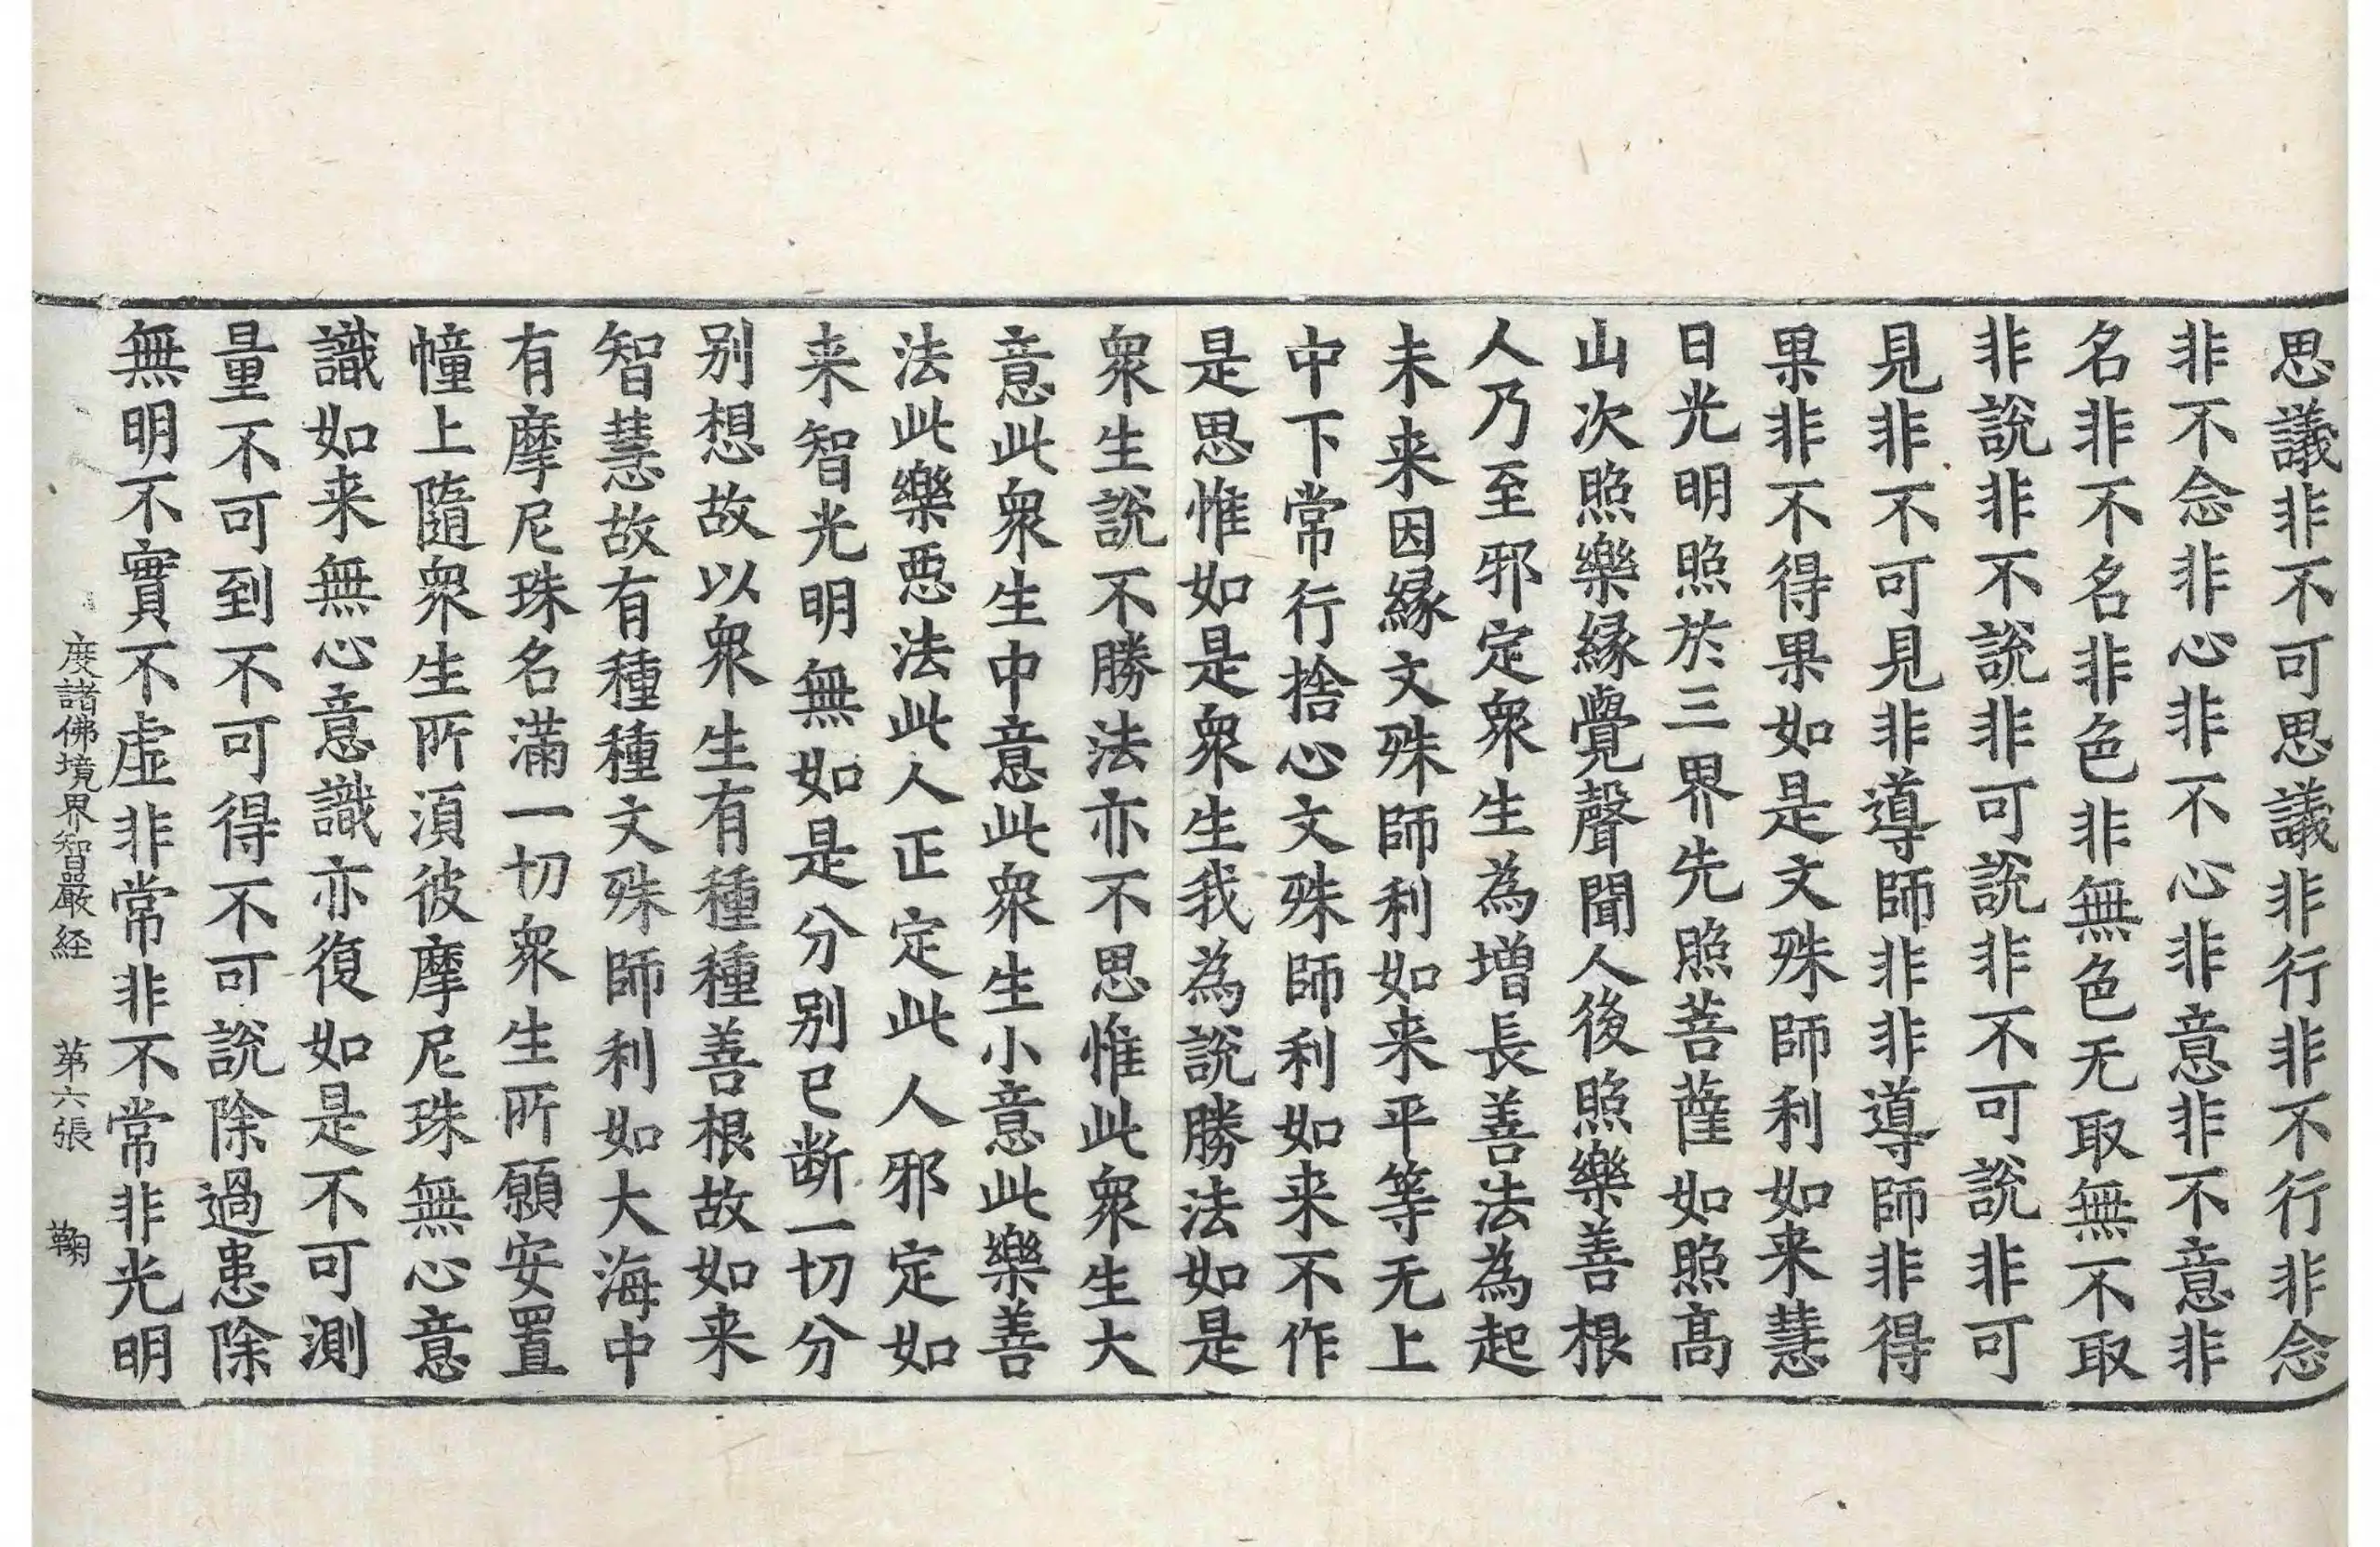 思議非不可思議非行非不行非念
非不念非心非不心非意非不意非
名非不名非色非無色无取無不取
非說非不說非可說非不可說非可
見非不可見非導師非非導師非得
果非不得果如是文殊師利如来慧
日光明照於三界先照菩薩如照高
山次照樂緣覺聲聞人後照樂善根
人乃至邪定衆生為增長善法為起
未来因緣文殊師利如来平等无上
中下常行捨心文殊師利如来不作
是思惟如是衆生我為說勝法如是
衆生說不勝法亦不思惟此衆生大
意此衆生中意此衆生小意此樂善
法此樂惡法此人正定此人邪定如
来智光明無如是分别已断一切分
别想故以衆生有種種善根故如来
智慧故有種種文殊師利如大海中
有摩尼珠名滿一切衆生所願安置
幢上隨衆生所湏彼摩尼珠無心意
識如来無心意識亦復如是不可測
量不可到不可得不可說除過患除
無明不實不虛非常非不常非光明
度諸佛境界智嚴経 第六張 鞠